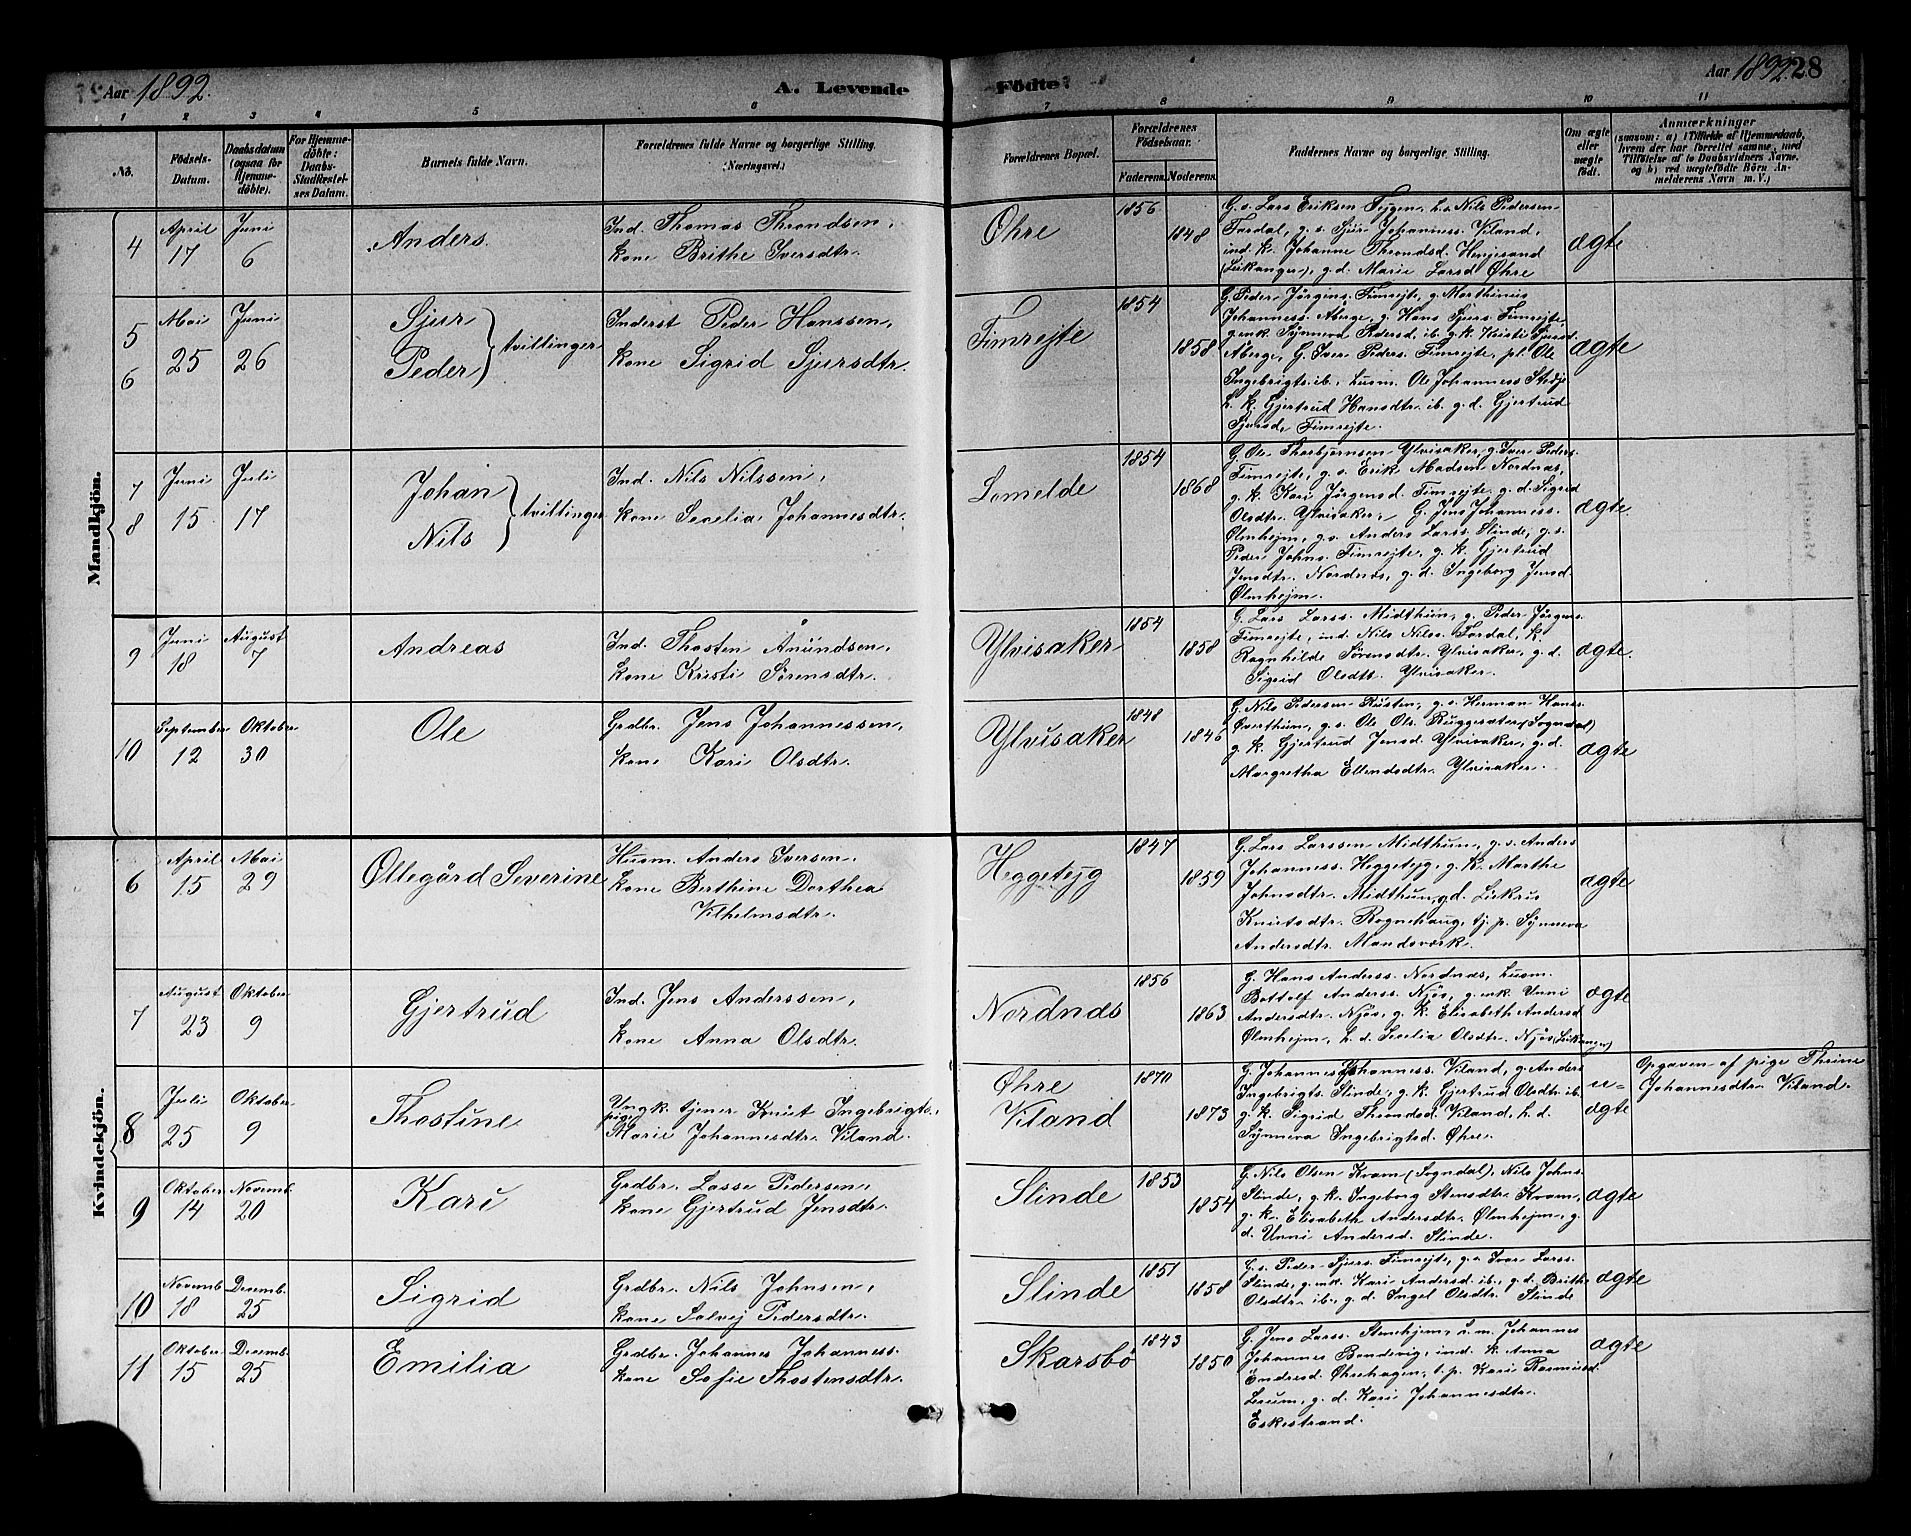 Aar 1892.
A. Levende
Födte
Aar 1892
28
1 2 3 4 5 6 7 8 9 10 11
No.
Födsels-
Datum.
Daabsdatum
(ogsaa for
Hjemme-
döbte).
For Hjemme-
döbte:
Daabs-
Stadfæstel-
ses Datum.
Barnets fulde Navn.
Forældrenes fulde Navne og borgerlige Stilling.
(Næringsvei.)
Forældrenes Bopæl.
Forældrenes
Födselsaar.
Faderens. Moderens.
Faddernes Navne og borgerlige Stilling.
Om ægte
eller
uægte
födt.
Anmærkninger
(saasom: a) i Tilfælde af Hjemmedaab,
hvem der har forrettet samme, med
Tilföielse af to Daabsvidners Navne.
og b) ved uægtefödte Börn An-
melderens Navn m. V.)
Mandkjön.
4
April
17
Juni
6
Anders.
Ind. Thomas Throndsen,
kone Brithe Iversdtr.
Øhre
1856
1848
G. s. Lars Eriksen Fuggen, h.s. Nils Pedersen
Fardal, g. s. Sjur Johanness. Viland,
ind. k. Johanne Throndsd. Henjesand
(Leikanger), g. d. Marie Larsd Øhre
ægte
5
6
Mai
25
Juni
26
Sjur
Peder
tvillinger
Inderst Peder Hanssen,
kone Sigrid Sjursdtr.
Fimrejte
1854
1858
G. Peder Jörgens. Fimrejte, g. Marthinus
Johanness. Aberge, g. Hans Sjurs. Fimrejte,
g.mk. Synneva Pedersd. ib. g. k. Kristi Sjursd
Åberge, G. Iver Peders. Fimrejte, pl. Ole
Ingebrigts. ib., husm. Ole Johanness Stedje
h. k. Gjertrud Hansdtr. ib. g. d. Gjertrud
Sjursd. Fimrejte.
ægte
7
8
Juni
15
Juli
17
Johan
Nils
tvillinger
Ind. Nils Nilssen,
kone Secelia Johannesdtr.
Lomelde
1854
1868
G. Ole Thorbjörnsen Ylvisaker, g. Iver Peders.
Fimrejte, g. s. Erik Madsen Nordnæs,
g. k. Kari Jörgensd. Fimrejte, g. d. Sigrid
Olsdtr. Ylvisaker, G. Jens Johanness.
Ølmhejm, g. s. Anders Larss. Slinde, g. s.
Peder Johns. Fimrejte, g. k. Gjertrud
Jensdtr. Nordnæs, g. d. Ingeborg Jensd.
Ølmhejm.
ægte.
9
Juni
18
August
7
Andreas
Ind. Thosten Anundsen,
kone Kristi Sörensdtr.
Ylvisaker
1854
1858
G. Lars Larss. Midthun, g. Peder Jörgens.
Fimrejte, ind. Nils Nilss. Fardal, k.
Ragnhilde Sörensdtr. Ylvisaker, g. d.
Sigrid Olsdtr. Ylvisaker.
ægte.
10
September
12
Oktober
30
Ole
Grdbr. Jens Johannessen,
kone Kari Olsdtr.
Ylvisaker
1848
1846
G. Nils Pedersen Rusten, g. s. Herman Hanss.
Øverthun, g. s. Ole Ols. Ruggesæter (Sogndal)
g. k. Gjertrud Jensd. Ylvisaker, g. d.
Margretha Ellendsdtr. Ylvisaker.
ægte
Kvindekjön.
6
April
15
Mai
29
Øllegård Severine
Husm. Anders Iversen,
kone Berthine Dorthea
Vilhelmsdtr.
Heggetejg
1847
1859
G. Lars Larssen Midthun, g. s. Anders
Johanness. Heggetejg, g. k. Marthe
Johnsdtr. Midthun, g.d.
Knutsdtr. Rognehaug, tj. p. Synneva
Andersdtr. Mandsværk.
ægte
7
August
23
Oktober
9
Gjertrud
Ind. Jens Anderssen,
kone Anna Olsdtr.
Nordnæs
1856
1863
G. Hans Anderss. Nordnæs, husm.
Bottolf Anderss. Njøs, g. mk. Unni
Andersdtr. Njøs, g. k. Elisabeth Andersd
Ølmhejm, h. d. Secelia Olsdtr. Njøs (Leikanger)
ægte
8
Juli
25
Oktober
9
Thostine
Ungk. tjener Knut Ingebrigts.,
pige Marie Johannesdtr. Viland.
Øhre
Viland
1870
1873
G. Johannes Johanness. Viland, g. Anders
Ingebrigts. Slinde, g. k. Gjertrud Olsdtr. ib.
g. k. Sigrid Throndsd. Viland, h. d.
Synneva Ingebrigtsd. Øhre.
u-
ægte
Opgaven af pige Thrine
Johannesdtr. Viland.
9
Oktober
14
Novemb.
20
Kari
Grdbr. Lasse Pedersen,
kone Gjertrud Jensdtr.
Slinde
1853
1854
G. Nils Olsen Kvam (Sogndal), Nils Johns.
Slinde, g. k. Ingeborg Stensdtr. Kvam,
g. k. Elisabeth Andersdtr. Ølmhejm, g.
d. Unni Andersd. Slinde.
ægte
10
Novemb.
18
Decemb.
25
Sigrid
Grdbr. Nils Johnsen,
kone Solvej Pedersdtr.
Slinde
1851
1858
G. s. Peder Sjurs. Fimrejte, g. s. Ivar Larss.
Slinde, g. mk. Kari Andersd. ib., g. d. Brithe
Olsdtr. ib., g. d. Ingel Olsdtr. Slinde
ægte
11
Oktober
15
Decemb.
25
Emilia
Grdbr. Johannes Johanness.
kone Sofie Thostensdtr.
Skarsbö
1843
1850
G. Jens Larss. Stenehjem, u. m. Johannes
Johannes Bondevig, ind. k. Anna
Endresd. Øhrehagen, t. p. Kari Rasmusd.
Lerum, g. d. Kari Johannesdtr.
Eskestrand.
ægte